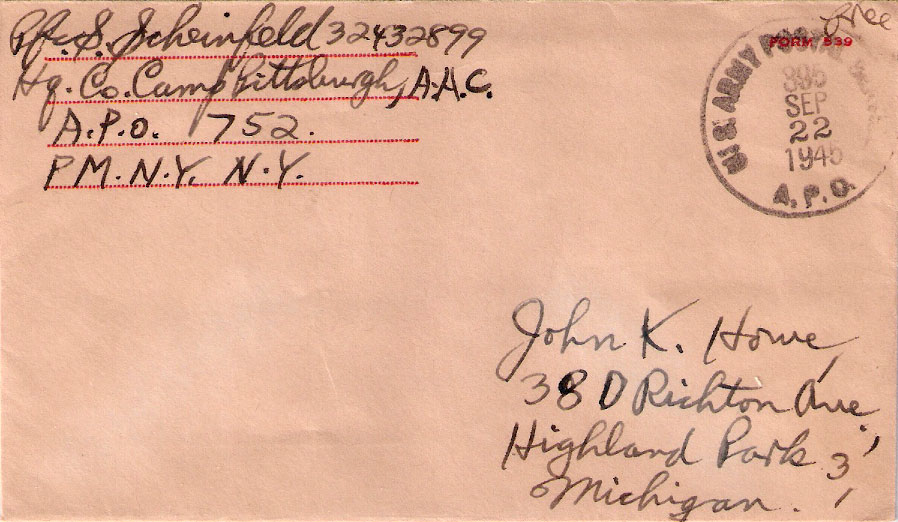 Pfc. S. Scheinfeld 32432899
Hq. Co. Camp Pittsburgh, A.A.C.
A.P.O. 752.
P.M. N.Y. N.Y.
Free
FORM 539
U.S. ARMY
895
SEP
22
1945
A.P.O.
John K. Howe,
38 D Richton Ave.,
Highland Park 3,
Michigan.